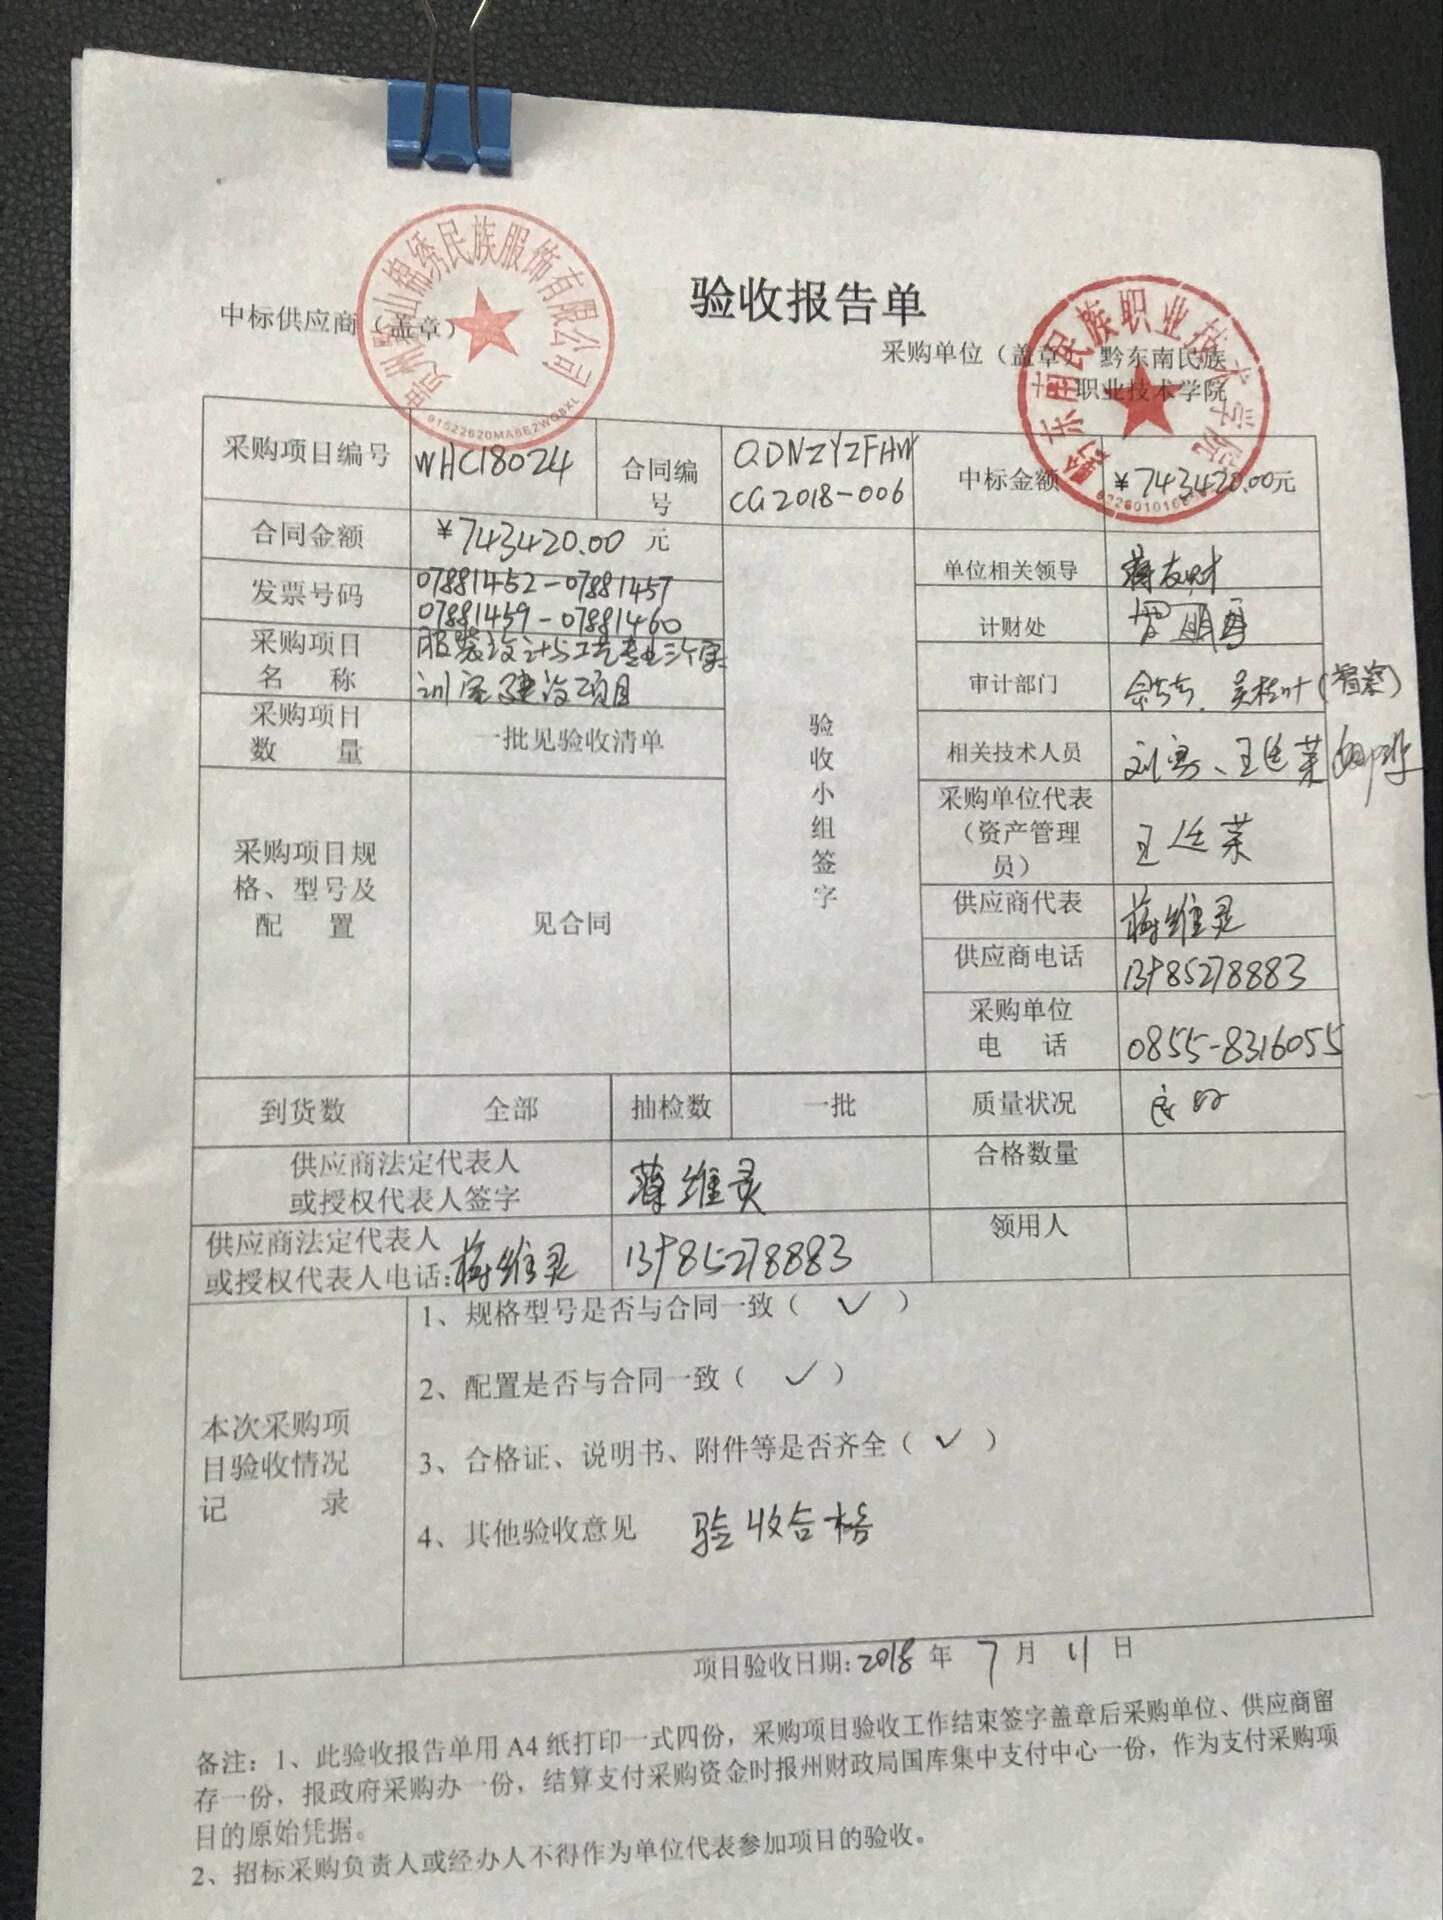 验收报告单
中标供应商（盖章）
山锦绣民族服饰有限公司
采购单位（盖章） 黔东南民族
职业技术学院
东南民族职业技术学院
采购项目编号 WHC18024 合同编号 QDNZYZFHW
CG2018-006 中标金额 ￥743420.00元
合同金额 ￥743420.00 元
发票号码 07881452-07881457
07881459-07881460
采购项目
名 称
服装设计与工艺专业三个实
训室建设项目
采购项目
数 量
一批见验收清单
采购项目规
格、型号及
配 置
见合同
验收小组签字
单位相关领导
计财处
审计部门
相关技术人员
采购单位代表
（资产管理
员）
王廷荣
供应商代表
维灵
供应商电话 13985278883
采购单位
电 话
0855-8316055
到货数 全部 抽检数 一批 质量状况 良好
供应商法定代表人
或授权代表人签字
维灵
合格数量
供应商法定代表人
或授权代表人电话: 维灵 13985278883
领用人
本次采购项
目验收情况
记 录
1、规格型号是否与合同一致（ ✓ ）
2、配置是否与合同一致（ ✓ ）
3、合格证、说明书、附件等是否齐全（ ✓ ）
4、其他验收意见 验收合格
项目验收日期: 2018 年 7 月 11 日
备注：1、此验收报告单用 A4 纸打印一式四份，采购项目验收工作结束签字盖章后采购单位、供应商留
存一份，报政府采购办一份，结算支付采购资金时报州财政局国库集中支付中心一份，作为支付采购项
目的原始凭据。
2、招标采购负责人或经办人不得作为单位代表参加项目的验收。